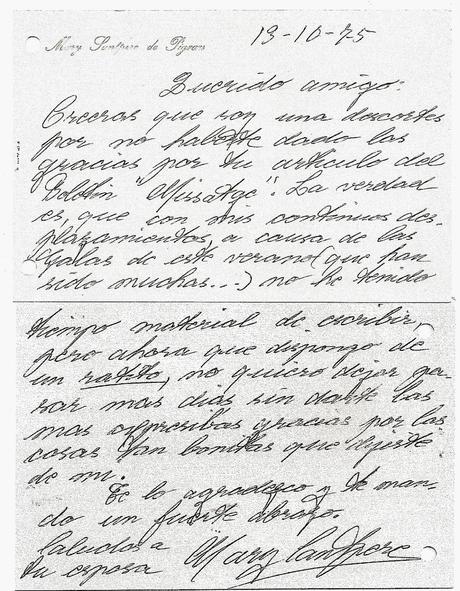 Mary Santpere de Pigrau
13-10-75
Querido amigo:
Creeras que soy una descortes
por no haberte dado las
gracias por tu articulo del
Boletin "Missatge". La verdad
es, que con mis continuos des-
plazamientos, a causa de las
galas de este verano (que han
sido muchas...) no he tenido
tiempo material de escribir,
pero ahora que dispongo de
un ratito, no quiero dejar pa-
sar mas dias sin darte las
mas expresibas gracias por las
cosas tan bonitas que dijiste
de mi.
Te lo agradezco y te man-
do un fuerte abrazo.
Saludos a
tu esposa Mary Santpere